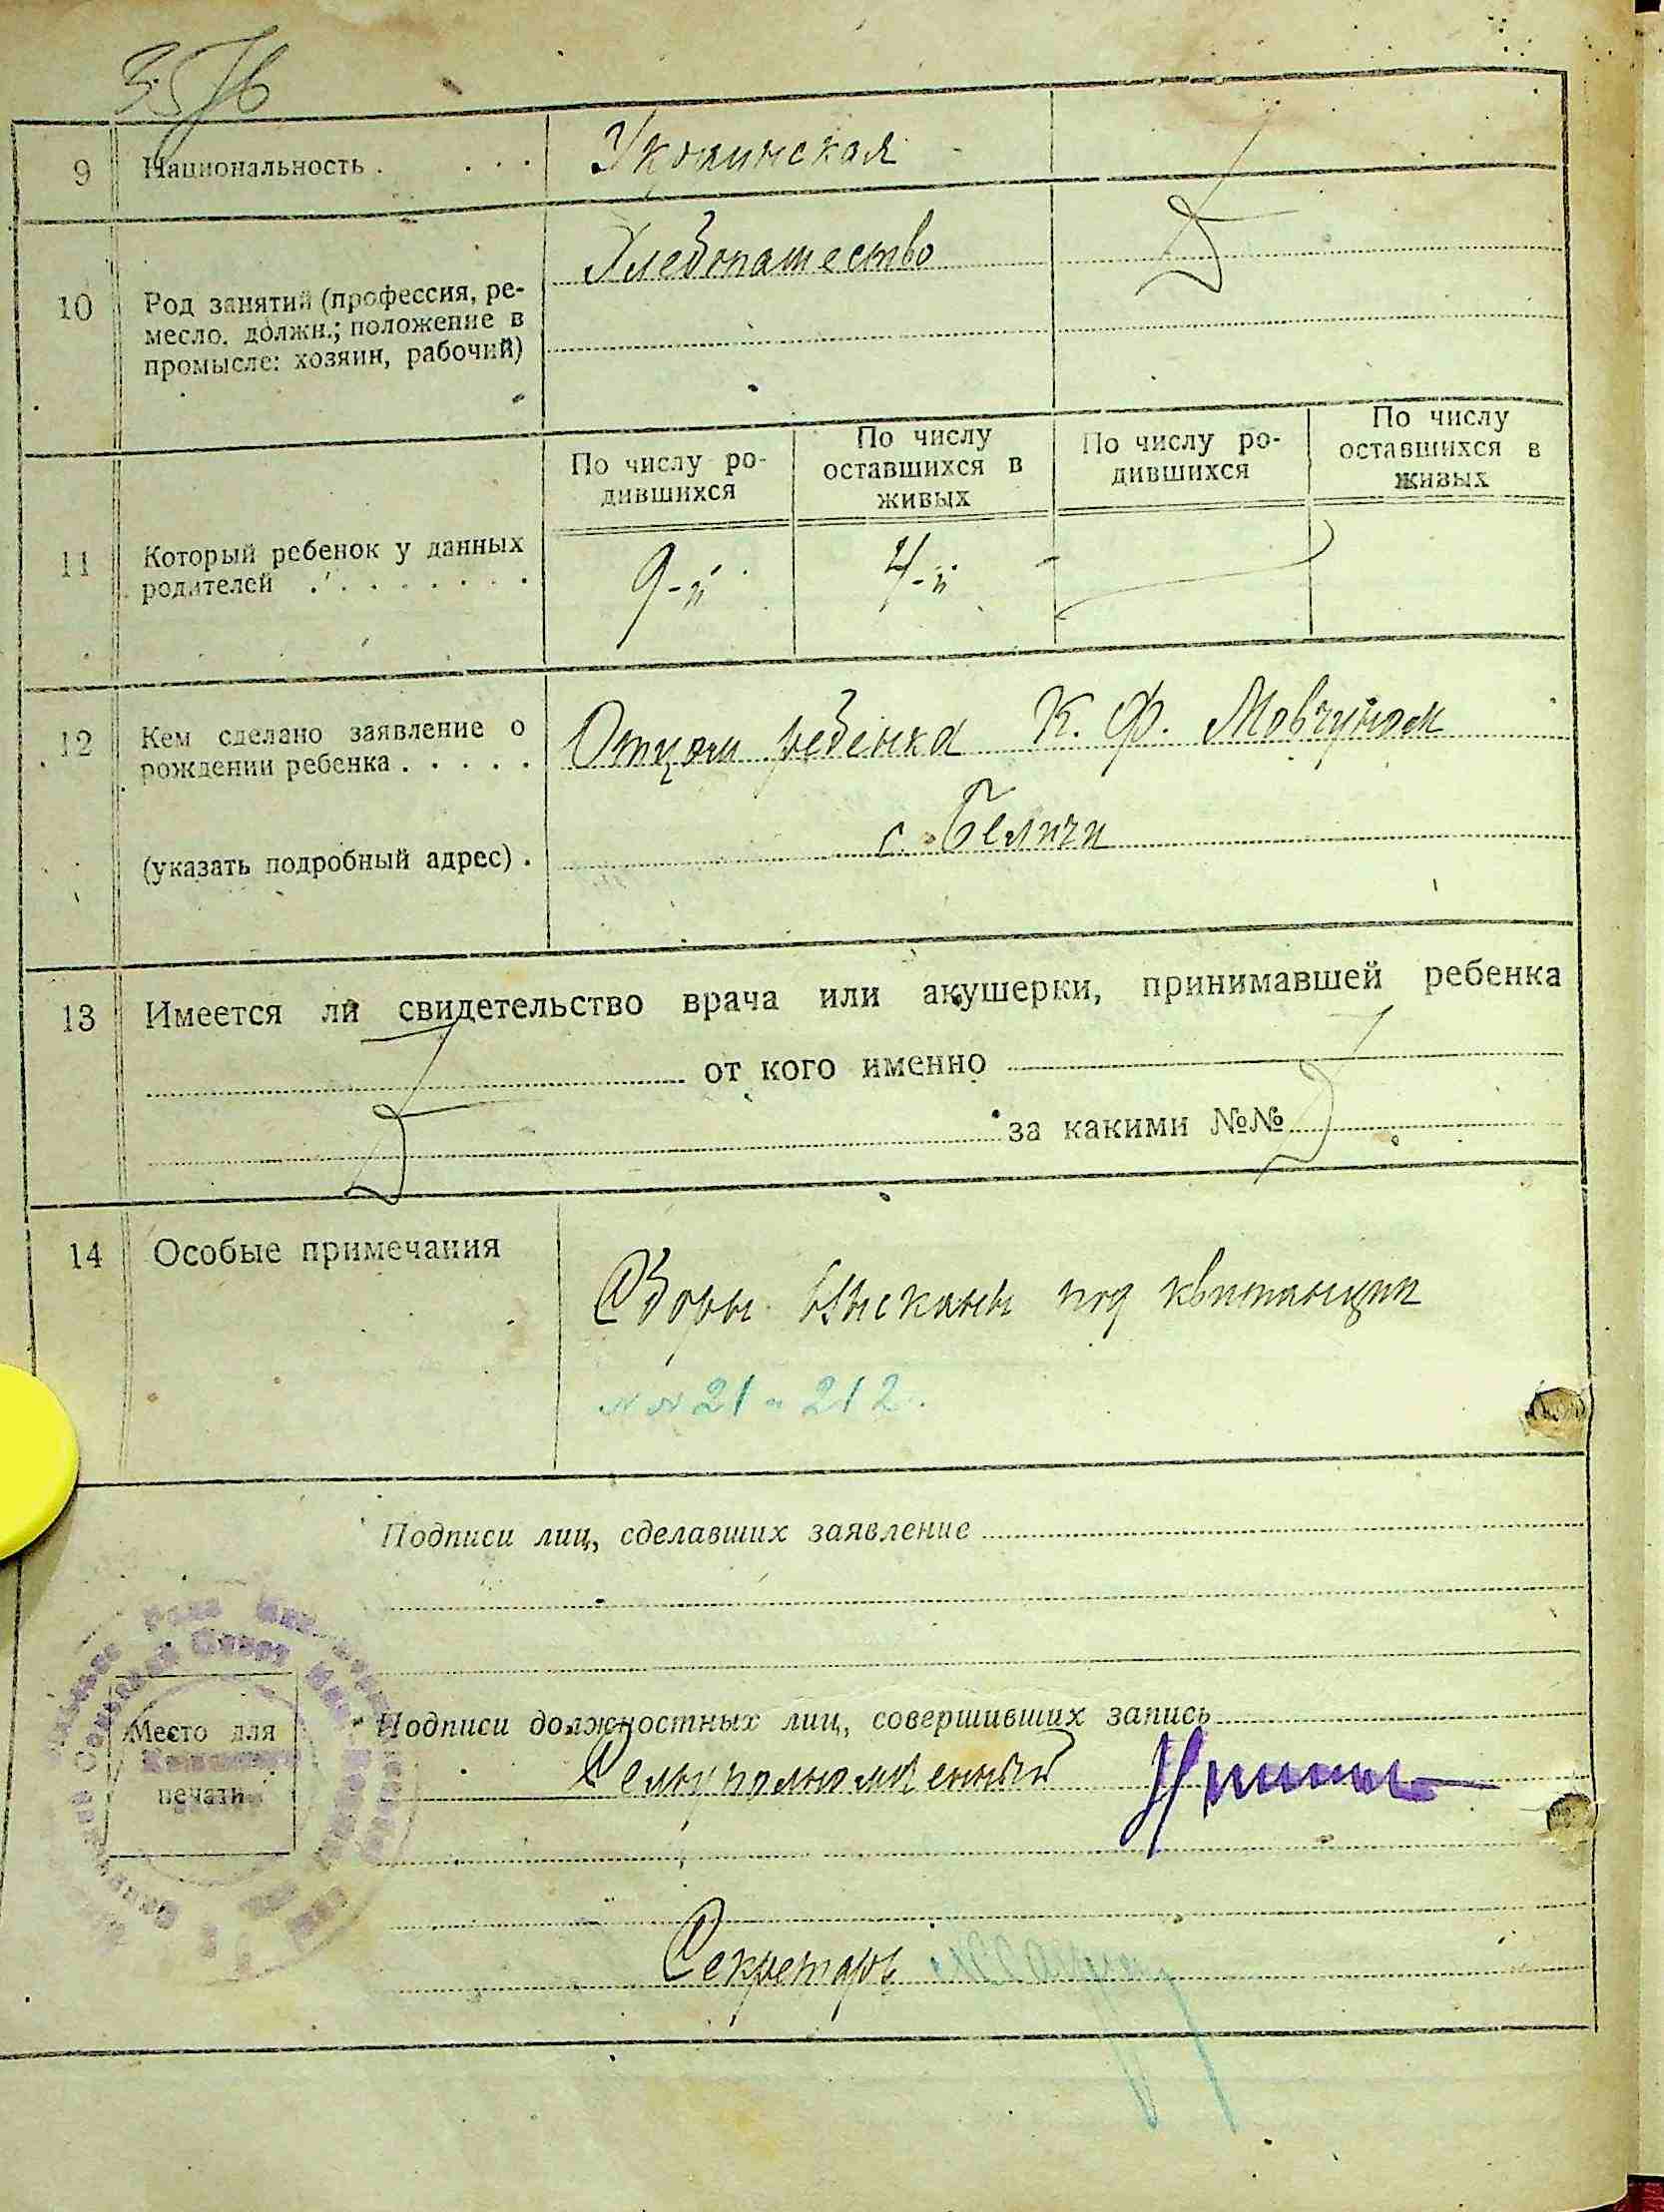 9 Национальность . . . . Украинская
Хлебопашество
10 Род занятий (профессия, ре-
месло, должн.; положение в
промысле: хозяин, рабочий)
По числу ро-
дившихся
По числу
оставшихся в
живых
По числу ро-
дившихся
По числу
оставшихся в
живых
11 Который ребенок у данных
родителей . . . . . . . .
9-й 4-й
12 Кем сделано заявление о
рождении ребенка . . . . .
Отцом ребенка К. Ф. Мовчуном
(указать подробный адрес) .
с. Беличи
13 Имеется ли свидетельство врача или акушерки, принимавшей ребенка
от кого именно
за какими №№
14 Особые примечания
Сборы взысканы под квитанции
№№ 21 и 212.
Подписи лиц, сделавших заявление
Место для
печати
Подписи должностных лиц, совершивших запись
Сельуполномоченный
Секретарь